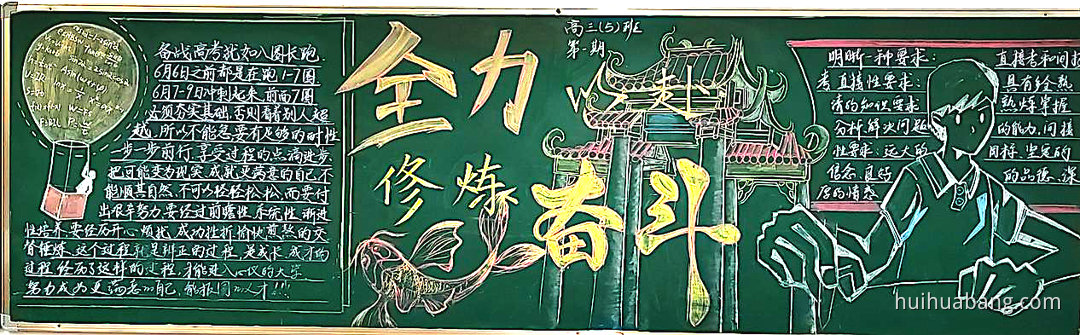 高三(5)班
第一期
全力
以赴
修炼
奋斗
备战高考犹如八圈长跑
6月6日之前都是在跑1-7圈
6月7-9日冲刺起来,前面7圈
必须夯实基础,否则看着别人超
越,所以不能急要有足够的耐性
一步一步前行,享受过程的点滴进步
把可能变为现实,成就更满意的自己,不
能顺其自然,不可以轻轻松松,而要付
出很辛努力要经过前瞻性 系统性 渐进
性培养,要经历开心 烦忧 成功挫折愉快煎熬的交
替锤炼,这个过程就是纠正的过程,是成长 成才的
过程,经历了这样的过程,才能进入心仪的大学
努力成为更满意的自己,能报国的人才!!!
明晰一种要求: 直接考和间接
考,直接性要求: 具有经熟
清的知识要求 熟炼掌握
分析 解决问题 的能力,间接
性要求:远大的 目标 坚定的
信念 良好 的品德、深
厚的情感
huihuabang.com